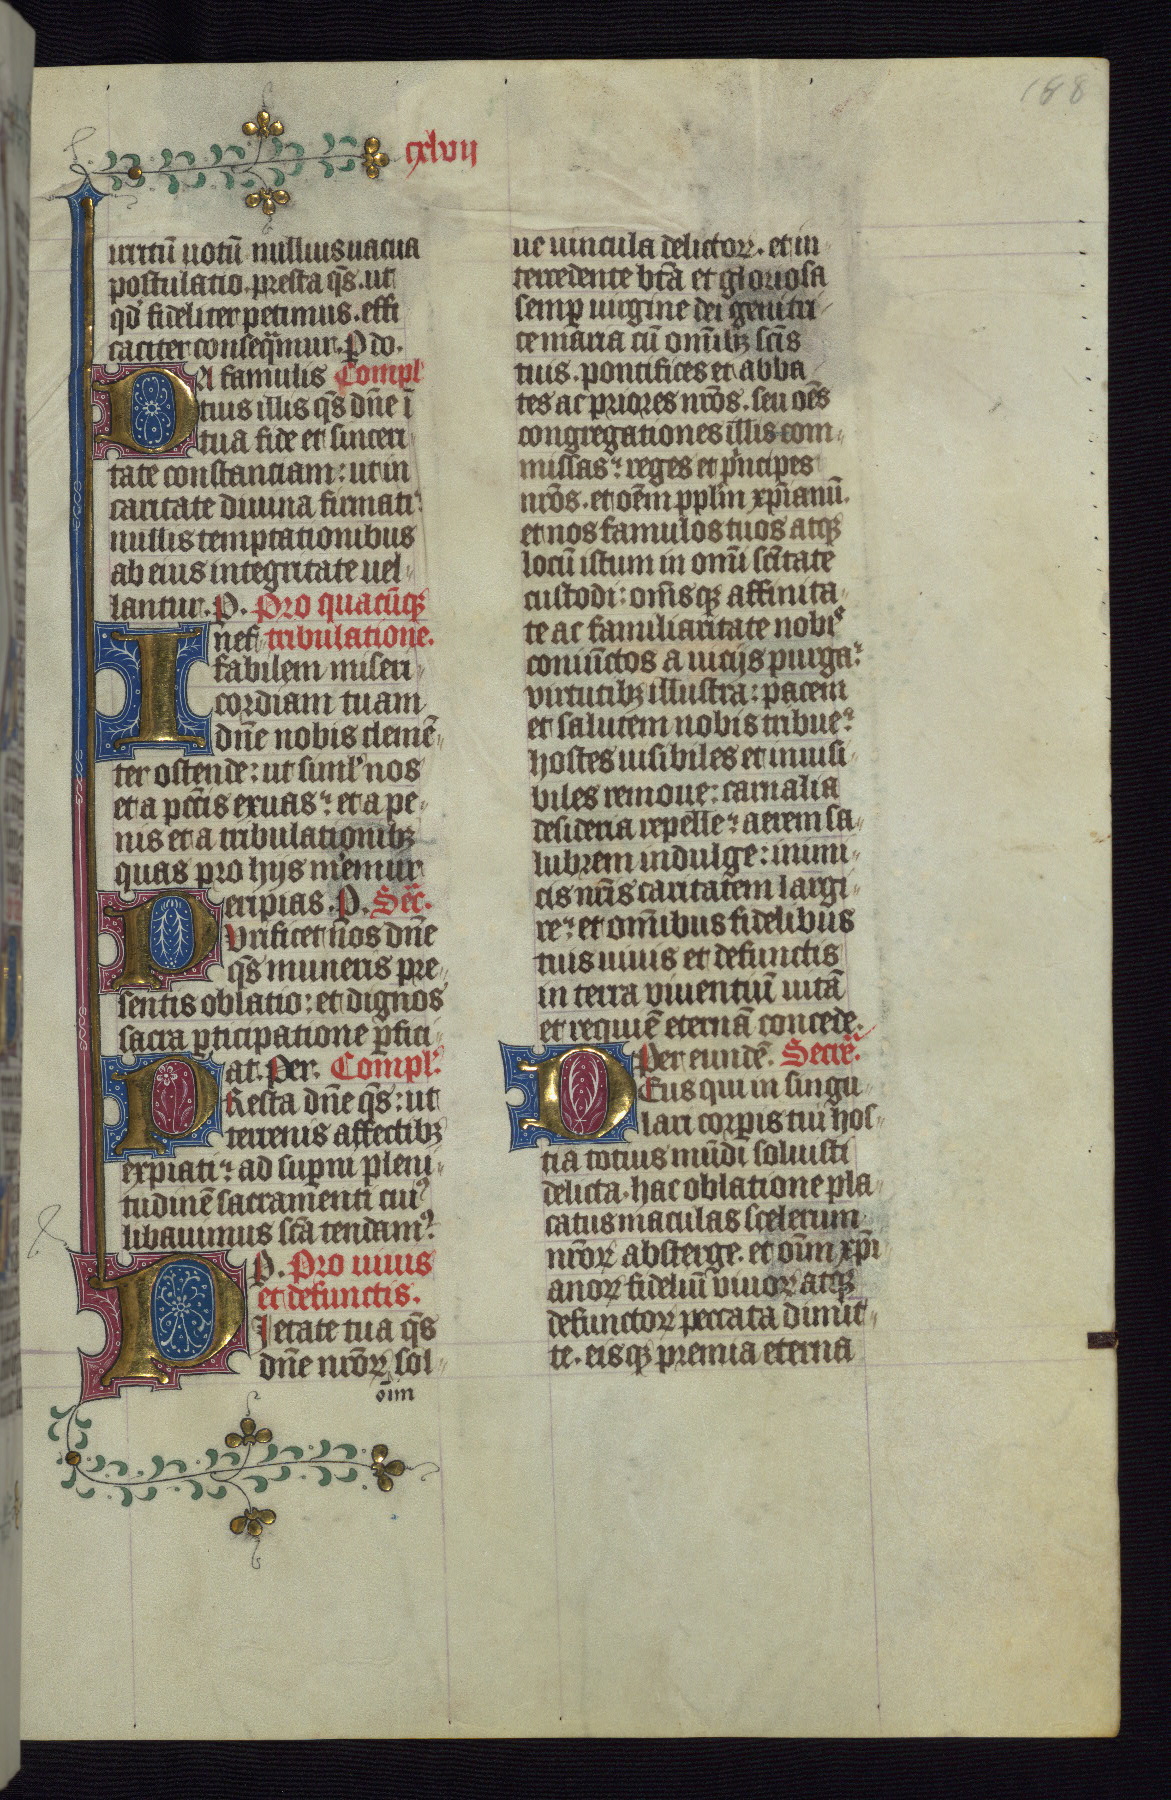 168
cxlvii
urrtū uotū nulliusuacua
postulatio. presta qs̄. ut
qd' fideliter petimus. effi
caciter conseqamur. P do.
DA famulis Compl
tuis illis qs̄ dn̄e ī
tua fide et sinceri
tate constantiam: ut in
caritate diuina firmati:
nullis temptationibus
ab eius integritate uel
lantur. P. Pro quacūqꝫ
Inef tribulatione.
fabilem miseri
cordiam tuam
dn̄e nobis clemē
ter ostende: ut siml' nos
et a pcc̄is exuas: et a pe
nis et a tribulationibꝫ
quas pro hijs m̄emur
eripias. P. Sēc.
Purificet nos dn̄e
qs̄ muneris pre
sentis oblatio: et dignos
sacra ꝑticipatione ꝑfici
at. Per. Compl'.
Presta dn̄e qs̄: ut
terrenis affectibꝫ
expiati: ad suꝑni pleni
tudinē sacramenti cui'
libauimus sc̄a tendam'.
P. Pro uiuis
et defunctis.
Pietate tua qs̄
dn̄e nr̄oꝝ sol
oīm
ue uincula delictoꝝ. et in
tercedente bt̄a et gloriosa
semꝑ uirgine dei genitri
ce maria cū om̄ibꝫ sc̄is
tuis. pontifices et abba
tes ac priores nr̄os. seu oēs
congregationes illis com
missas: reges et pncipes
nr̄os. et oēm pplm̄ xp̄ianū.
et nos famulos tuos atqꝫ
locū istum in omī sc̄itate
custodi: om̄sqꝫ affinita
te ac familiaritate nobis
coniūctos a uicijs purga:
virtutibꝫ illustra: pacem
et salutem nobis tribue:
hostes uisibiles et inuisi
biles remoue: carnalia
desideria repelle: aerem sa
lubrem indulge: inimi
cis nr̄is caritatem largi
re: et om̄ibus fidelibus
tuis uiuis et defunctis
in terra viuentiū uitā
et requiē eternā concede.
Per eundē. Secrē.
Deus qui in singu
lari corꝑis tui hos
tia totius mūdi soluisti
delicta. hac oblatione pla
catus maculas scelerum
nr̄oꝝ absterge. et oīm xp̄i
anoꝝ fideliū viuoꝝ atqꝫ
defunctoꝝ peccata dimit
te. eisqꝫ premia eterna